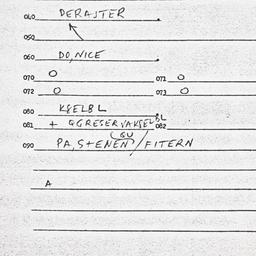 040 DERASTER
050
060 DO, NICE
070 O 071 O
072 O 073 O
080 KGELBL
081 + GGRESERVAKGELBL 082
GU
090 PA, STENEN/FITERN
A